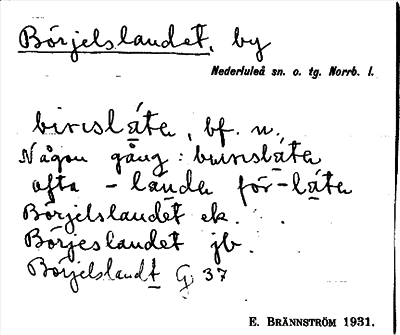 Börjelslandet, by
Nederluleå sn. o. tg. Norrb. l.
birislåta, bf. n.
Någon gång: burislåta
ofta -landa för -låta
Börjelslandet ek.
Börjeslandet jb.
Börjelslandt G 37
E. Brännström 1931.